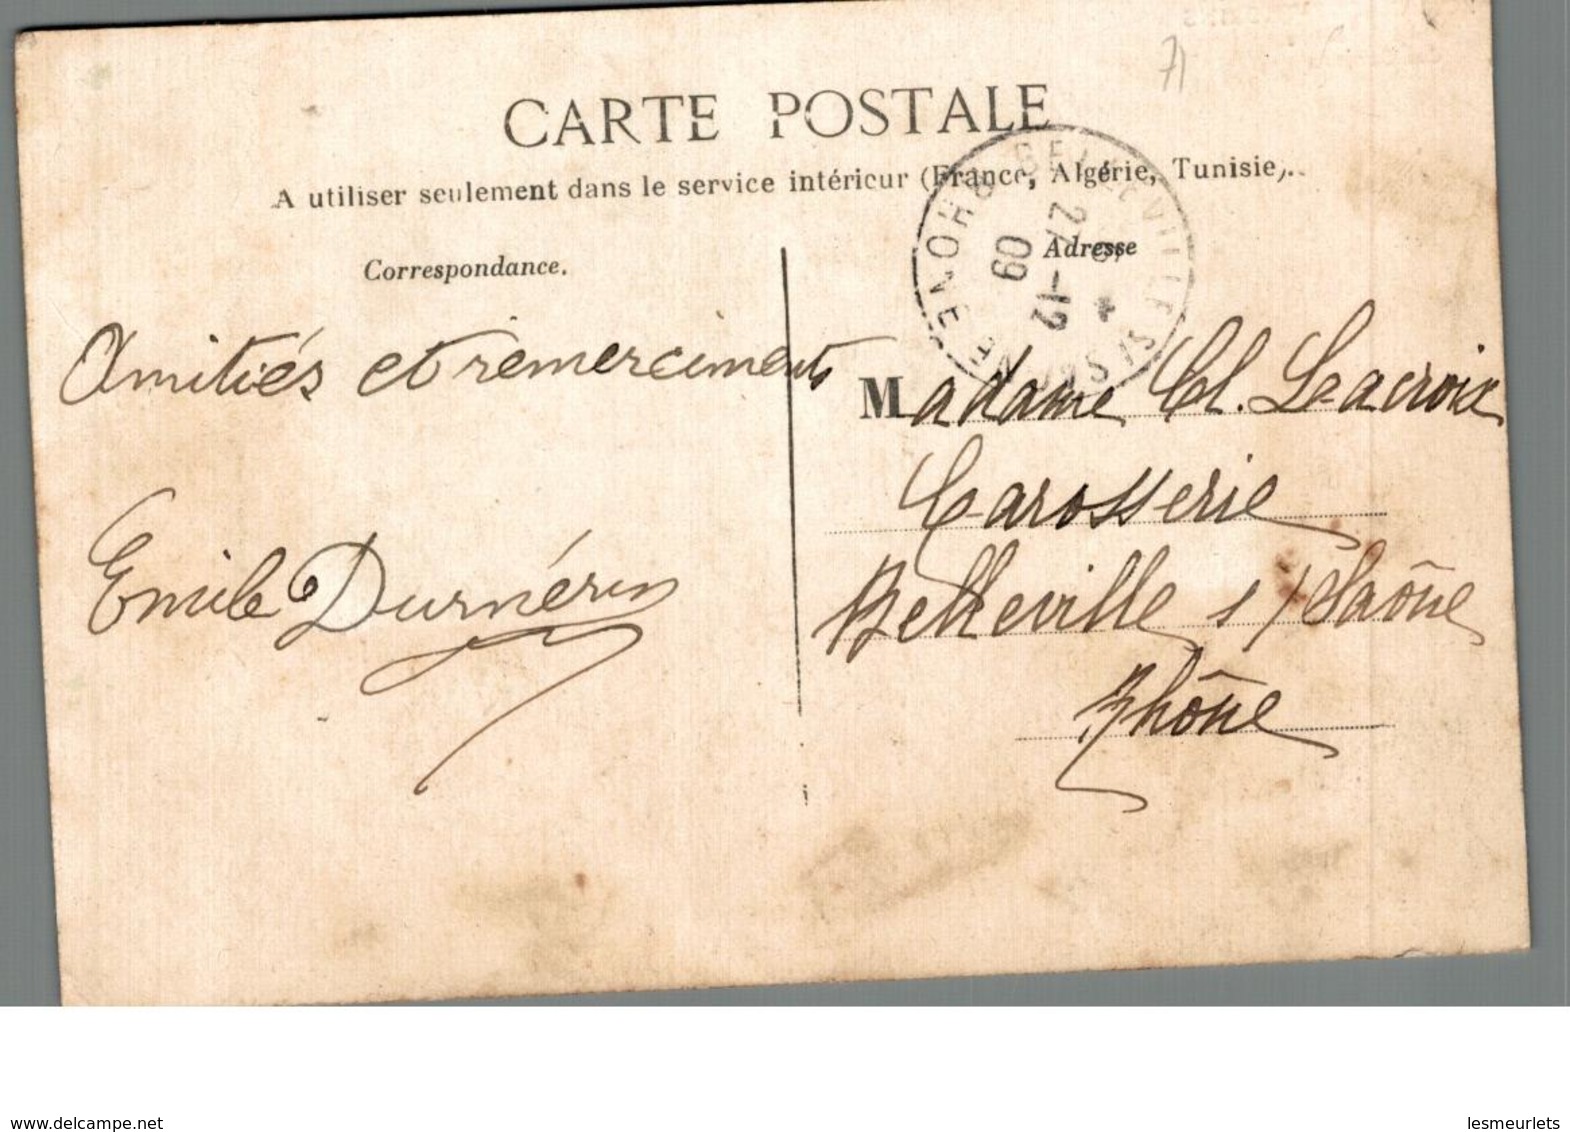 71
CARTE POSTALE
A utiliser seulement dans le service intérieur (France, Algérie, Tunisie).
Correspondance.
Adresse
BELLEVILLE S/ SAONE RHONE
27 -12
09
Amitiés et remerciments
Emile Durnérin
Madame Cl. Lacroix
Carosserie
Belleville s/Saône
Rhône
www.delcampe.net
lesmeurlets